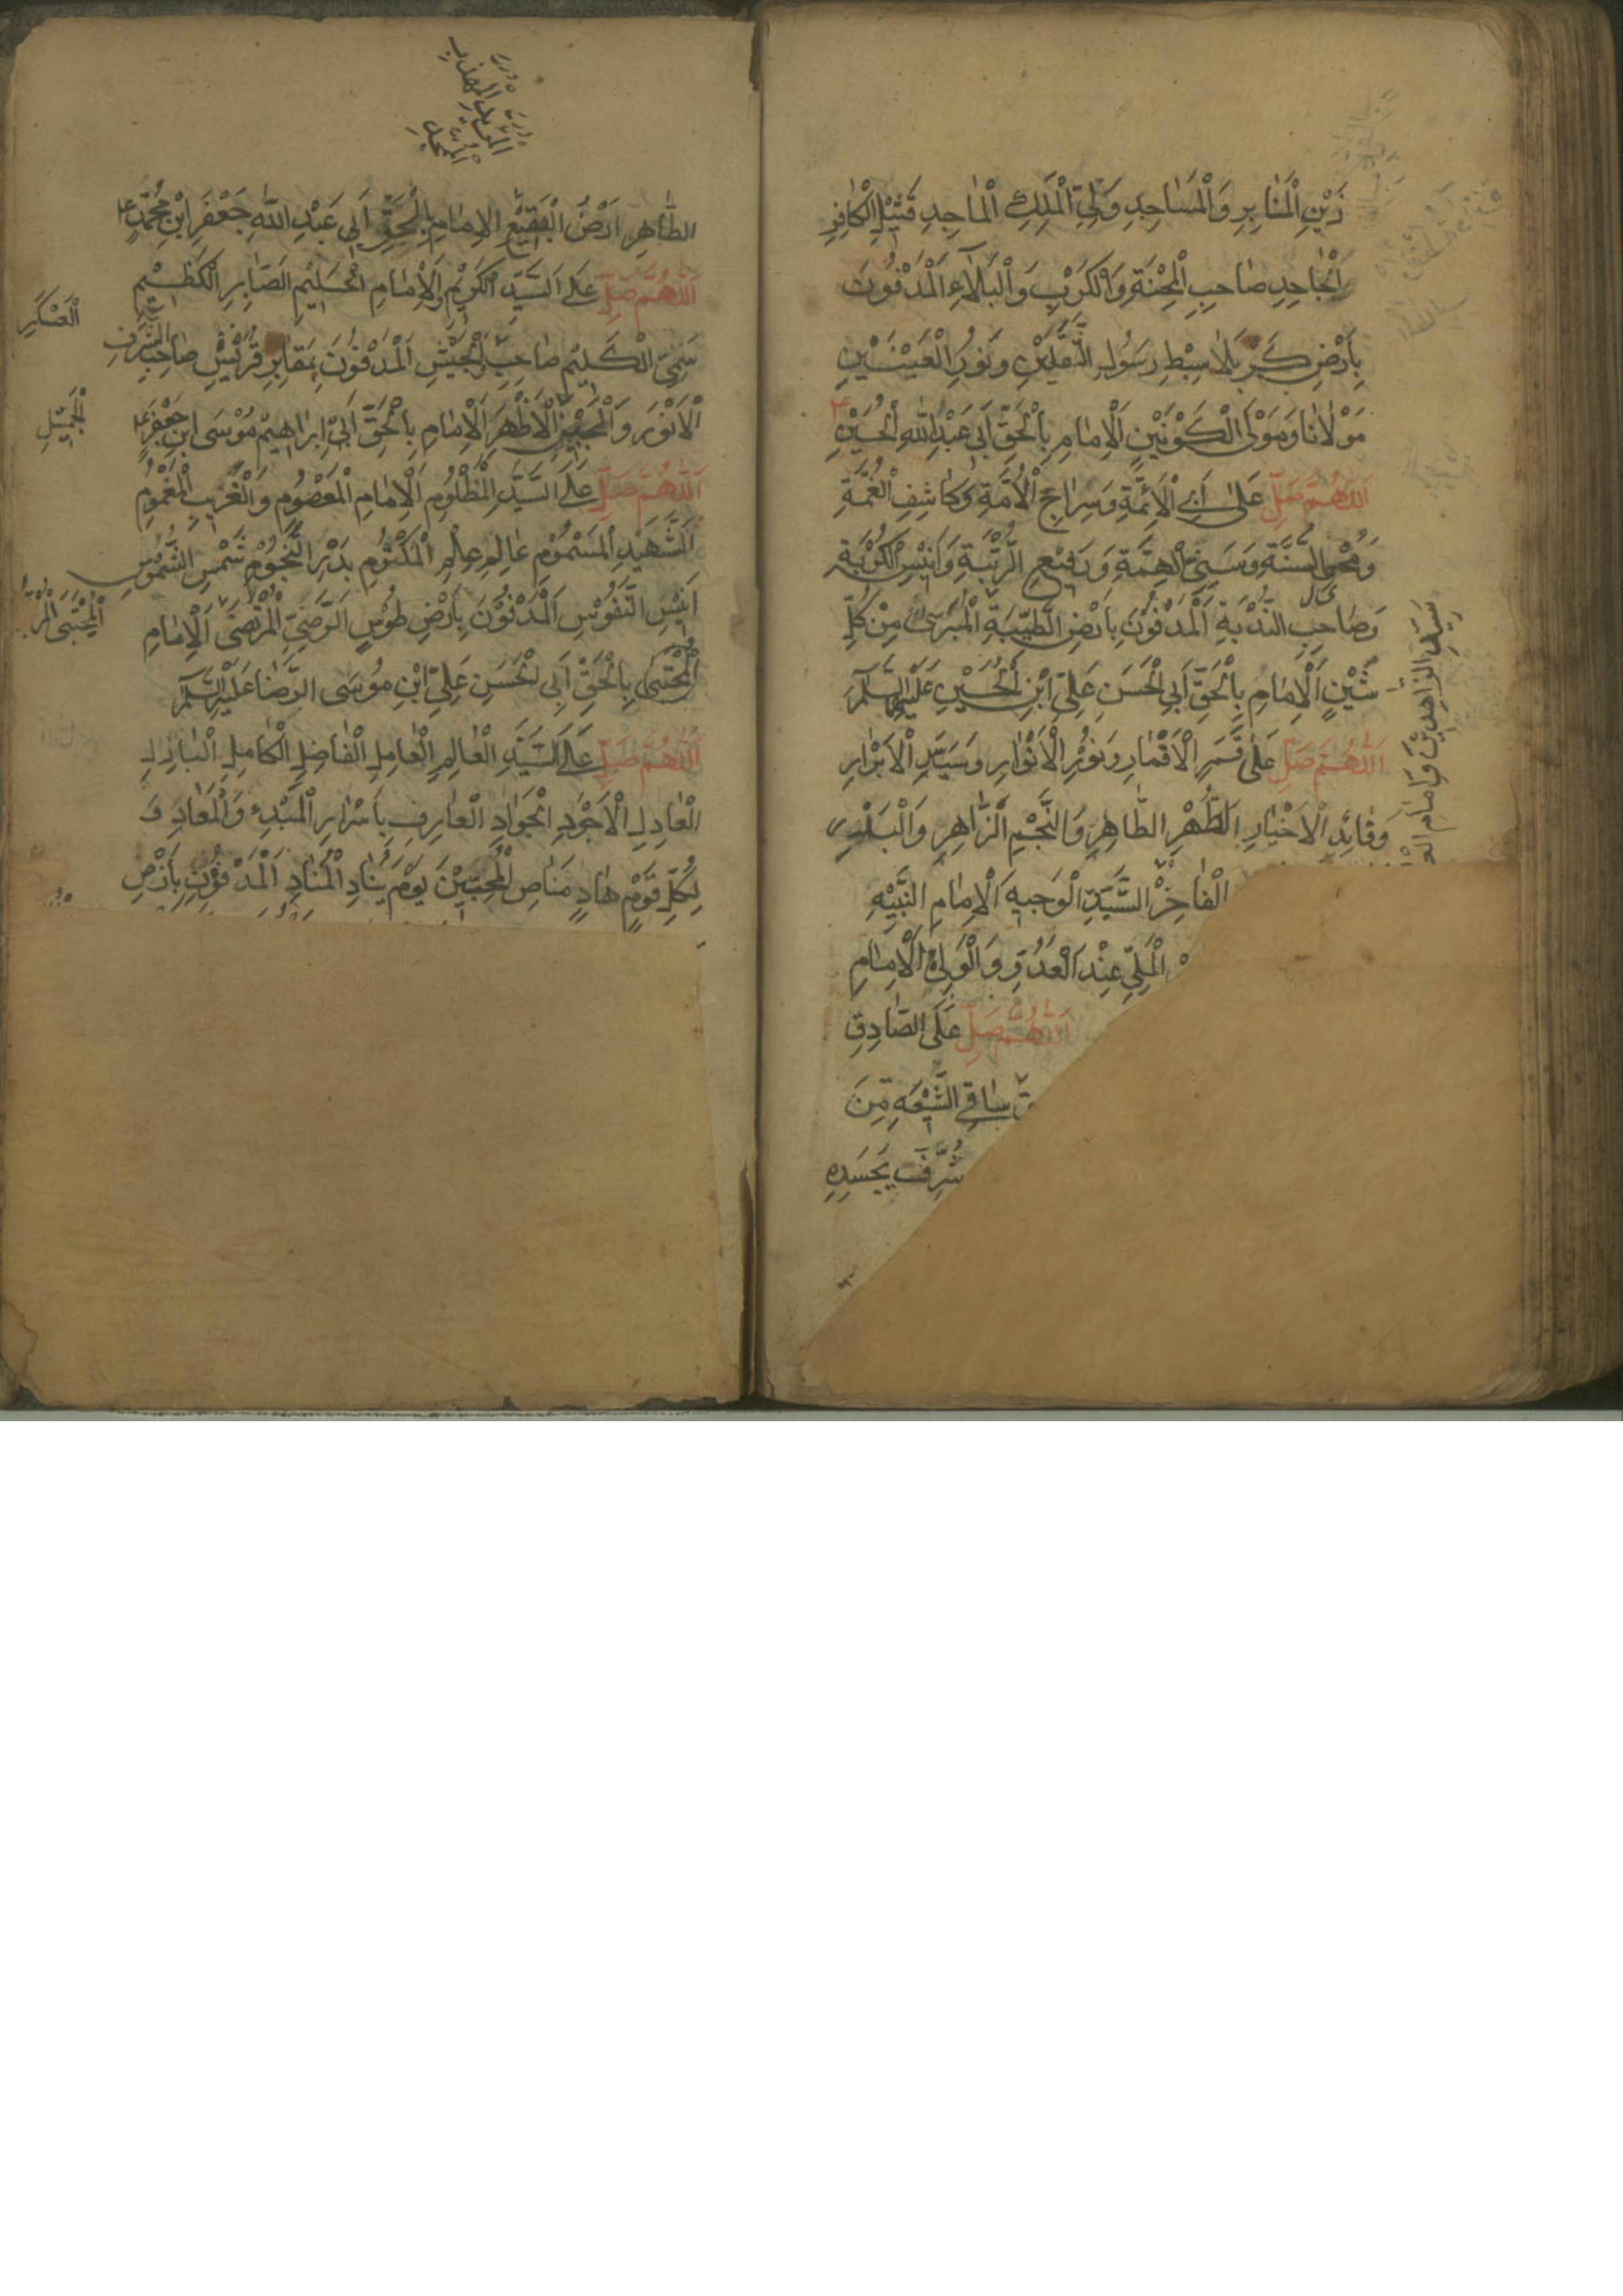 زَيْنِ الْمَنَابِرِ وَالْمَسَاجِدِ وَلِيِّ الْمَلِكِ الْمَاجِدِ قَتِيلِ الْكَافِرِ
الْجَاحِدِ صَاحِبِ الْمِحْنَةِ وَالْكَرْبِ وَالْبَلَاءِ الْمَدْفُونِ
بِأَرْضِ كَرْبَلَا سِبْطِ رَسُولِ الثَّقَلَيْنِ وَنُورِ الْعَيْنَيْنِ
مَوْلَانَا وَمَوْلَى الْكَوْنَيْنِ الْإِمَامِ بِالْحَقِّ أَبِي عَبْدِ اللَّهِ الْحُسَيْنِ ع
اللَّهُمَّ صَلِّ عَلَى أَبِي الْأَئِمَّةِ وَسِرَاجِ الْأُمَّةِ وَكَاشِفِ الْغُمَّةِ
وَمُحْيِ السُّنَّةِ وَسَنِيِّ الْهِمَّةِ وَرَفِيعِ الرُّتْبَةِ وَأَنِيسِ الْكُرْبَةِ
وَصَاحِبِ النُّدْبَةِ الْمَدْفُونِ بِأَرْضِ الطَّيِّبَةِ الْمُبَرَّى مِنْ كُلِّ
شَيْنٍ الْإِمَامِ بِالْحَقِّ أَبِي الْحَسَنِ عَلِيِّ ابْنِ الْحُسَيْنِ عَلَيْهِمَا السَّلَامُ
اللَّهُمَّ صَلِّ عَلَى قَمَرِ الْأَقْمَارِ وَنُورِ الْأَنْوَارِ وَسَيِّدِ الْأَبْرَارِ
وَقَائِدِ الْأَخْيَارِ الطُّهْرِ الطَّاهِرِ وَالنَّجْمِ الزَّاهِرِ وَالْبَدْرِ
الْفَاخِرِ السَّيِّدِ الْوَجِيهِ الْإِمَامِ النَّبِيهِ
الْمَلِيِّ عِنْدَ الْعَدُوِّ وَالْوَلِيِّ الْإِمَامِ
اللَّهُمَّ صَلِّ عَلَى الصَّادِقِ
سَاقِي الشِّيعَةِ مِنَ
شُرِّفَتْ بِجَسَدِهِ
سَيِّدِ الزَّاهِدِينَ وَإِمَامِ
الطَّاهِرِ أَرْضُ الْبَقِيعِ الْإِمَامِ بِالْحَقِّ أَبِي عَبْدِ اللَّهِ جَعْفَرِ ابْنِ مُحَمَّدٍ ع
اللَّهُمَّ صَلِّ عَلَى السَّيِّدِ الْكَرِيمِ وَالْإِمَامِ الْحَلِيمِ الصَّابِرِ الْكَظِيمِ
سَمِيِّ الْكَلِيمِ صَاحِبِ الْجَيْشِ الْمَدْفُونِ بِمَقَابِرِ قُرَيْشٍ صَاحِبِ الشَّرَفِ
الْأَنْوَرِ وَالْجَبِينِ الْأَظْهَرِ الْإِمَامِ بِالْحَقِّ أَبِي إِبْرَاهِيمَ مُوسَى ابْنِ جَعْفَرٍ ع
اللَّهُمَّ صَلِّ عَلَى السَّيِّدِ الْمَظْلُومِ الْإِمَامِ الْمَعْصُومِ وَالْغَرِيبِ الْمَغْمُومِ
الشَّهِيدِ الْمَسْمُومِ عَالِمِ عِلْمِ الْمَكْتُومِ بَدْرِ النُّجُومِ شَمْسِ الشُّمُوسِ
أَنِيسِ النُّفُوسِ الْمَدْفُونِ بِأَرْضِ طُوسٍ الرَّضِيِّ الْمُرْتَضَى الْإِمَامِ
الْمُجْتَبَى بِالْحَقِّ أَبِي الْحَسَنِ عَلِيِّ ابْنِ مُوسَى الرِّضَا عَلَيْهِ السَّلَامُ
اللَّهُمَّ صَلِّ عَلَى السَّيِّدِ الْعَالِمِ الْعَامِلِ الْفَاضِلِ الْكَامِلِ الْبَاذِلِ
الْعَادِلِ الْأَجْوَدِ الْجَوَادِ الْعَارِفِ بِأَسْرَارِ الْمَبْدَءِ وَالْمَعَادِ وَ
لِكُلِّ قَوْمٍ هَادٍ مَنَاصِ الْمُحِبِّينَ يَوْمَ يُنَادِ الْمُنَادِ الْمَدْفُونِ بِأَرْضِ
الْعَسْكَرِ
الْجَمِيلِ